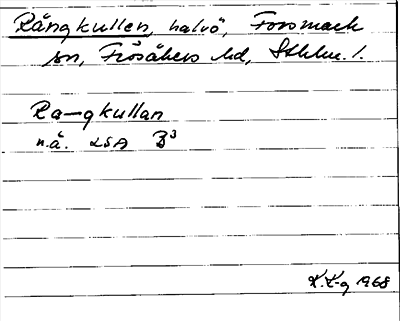 Rångkullen, halvö, Forsmark
sn, Frösåkers hd, Sthlm. l.
Ra—gkullan
n.å. LSA B³
K.K-g 1968